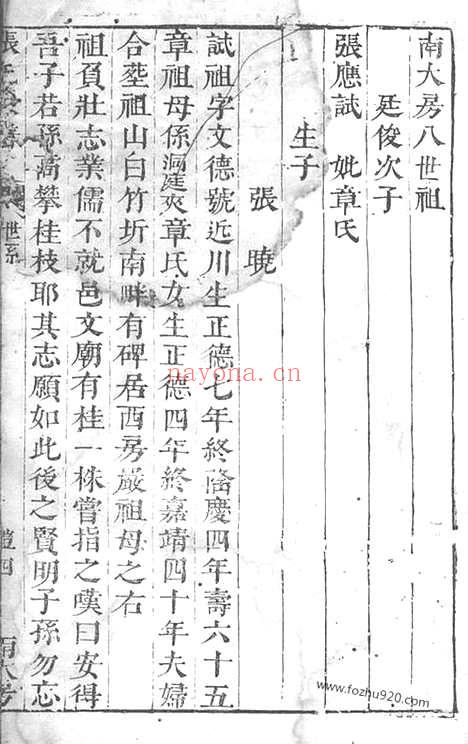 南大房八世祖
廷俊次子
張應試　妣章氏
生子
張曉
試祖字文德號近川生正德七年終隆慶四年壽六十五
章祖母係洞庭夾章氏女生正德四年終嘉靖四十年夫婦
合塟祖山白竹圻南畔有碑居西房嚴祖母之右
祖負壯志業儒不就邑文廟有桂一株嘗指之嘆曰安得
吾子若孫高攀桂枝耶其志願如此後之賢明子孫勿忘
世系
四
南大房
nayona.cn
www.fozhu920.com